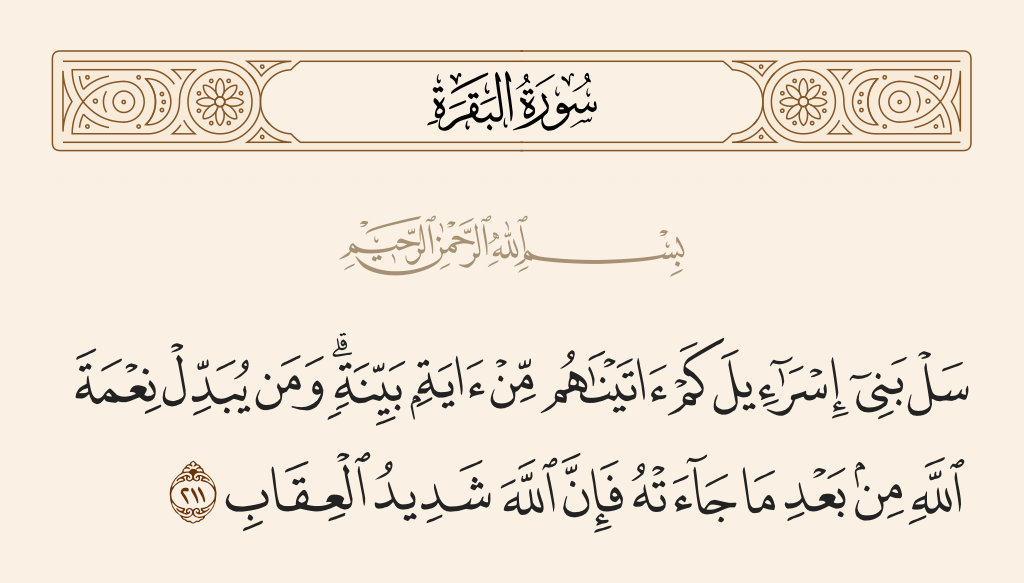 سُورَةُ البَقَرَةِ
بِسْمِ ٱللَّهِ ٱلرَّحْمَٰنِ ٱلرَّحِيمِ
سَلْ بَنِىٓ إِسْرَٰٓءِيلَ كَمْ ءَاتَيْنَٰهُم مِّنْ ءَايَةٍۭ بَيِّنَةٍۢ ۗ وَمَن يُبَدِّلْ نِعْمَةَ
ٱللَّهِ مِنۢ بَعْدِ مَا جَآءَتْهُ فَإِنَّ ٱللَّهَ شَدِيدُ ٱلْعِقَابِ ٢١١